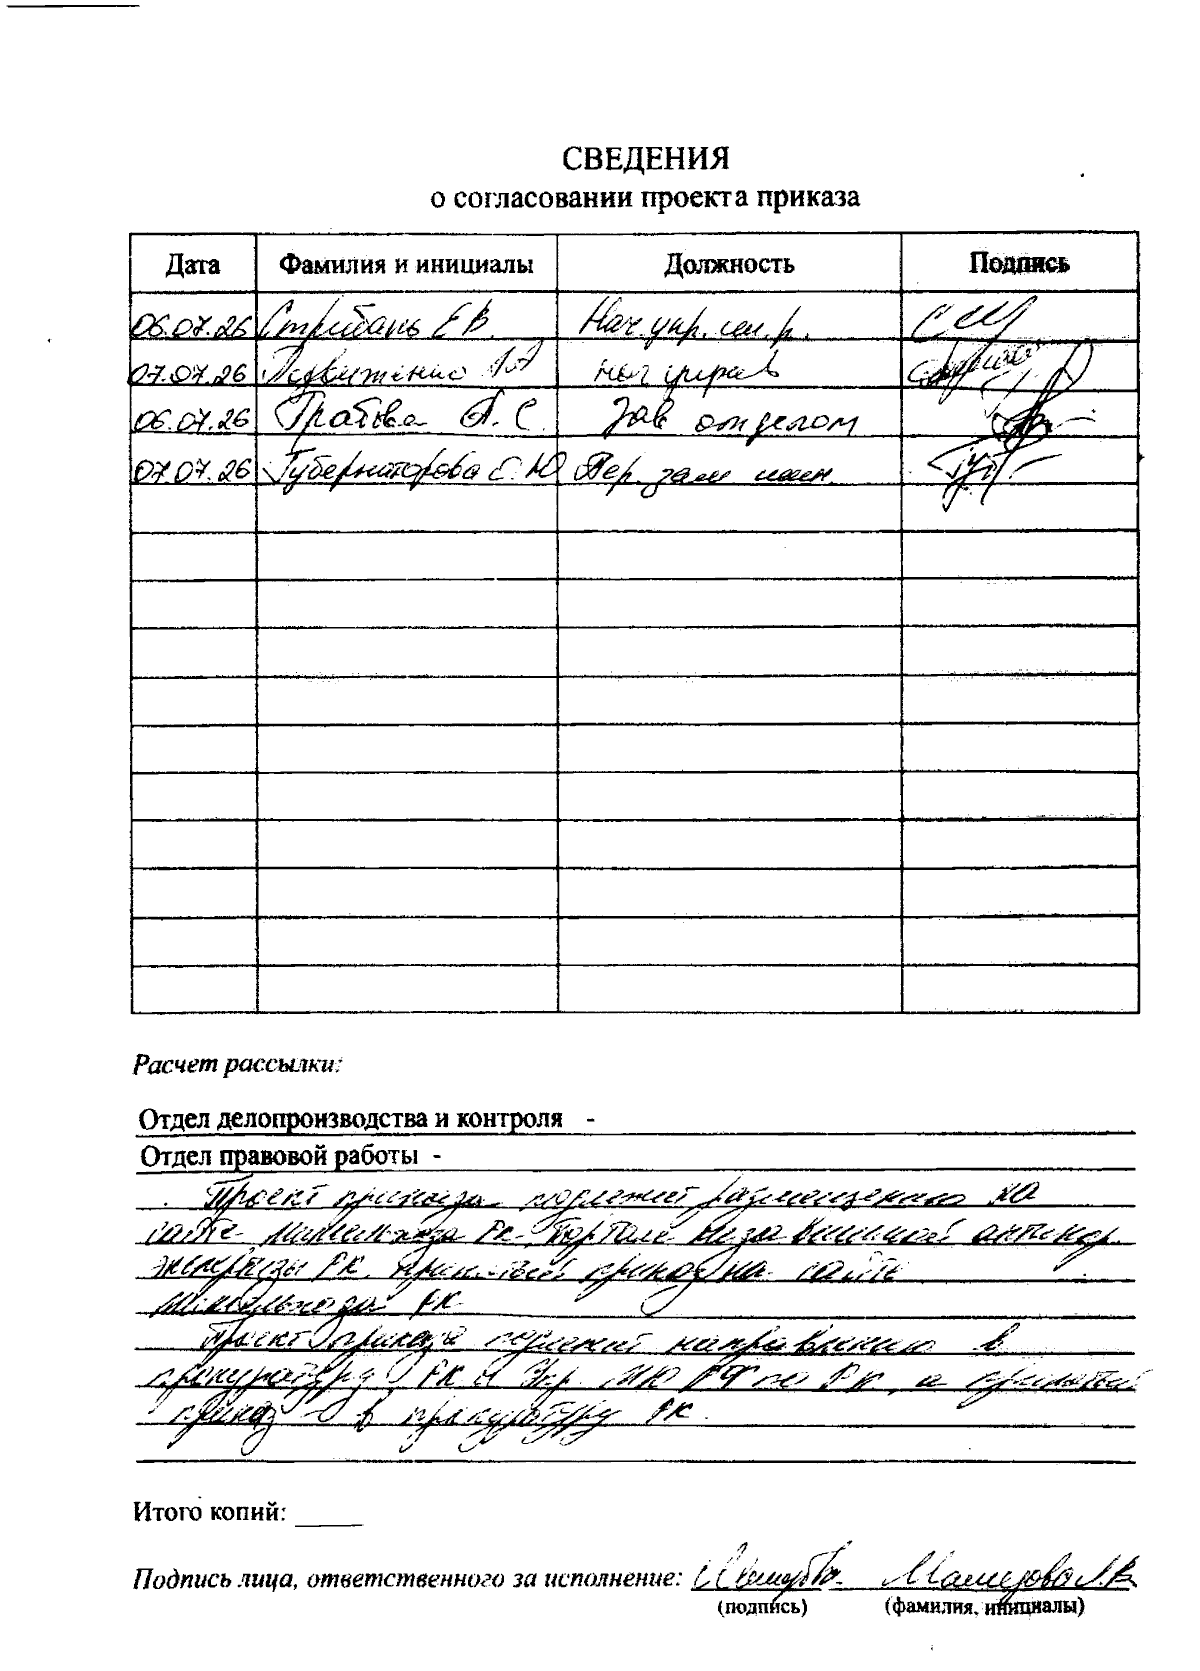 СВЕДЕНИЯ
о согласовании проекта приказа
Дата Фамилия и инициалы Должность Подпись
06.07.26 Стрибань Е В. Нач упр.
07.07.26 нач управ
06.07.26 А. С. Зав отделом
07.07.26 Губернаторова Е. Ю Пер. зам мин.
Расчет рассылки:
Отдел делопроизводства и контроля -
Отдел правовой работы -
Проект приказа подлежит размещению на
сайте Минсельхоза РК, Портале независимой антикор.
экспертизы РК. Принятый приказ на сайте
Минсельхоза РК
Проект приказа подлежит направлению в
прокуратуру РК и Упр. МЮ РФ по РК, а принятый
приказ - в прокуратуру РК.
Итого копий:
Подпись лица, ответственного за исполнение:
(подпись) (фамилия, инициалы)